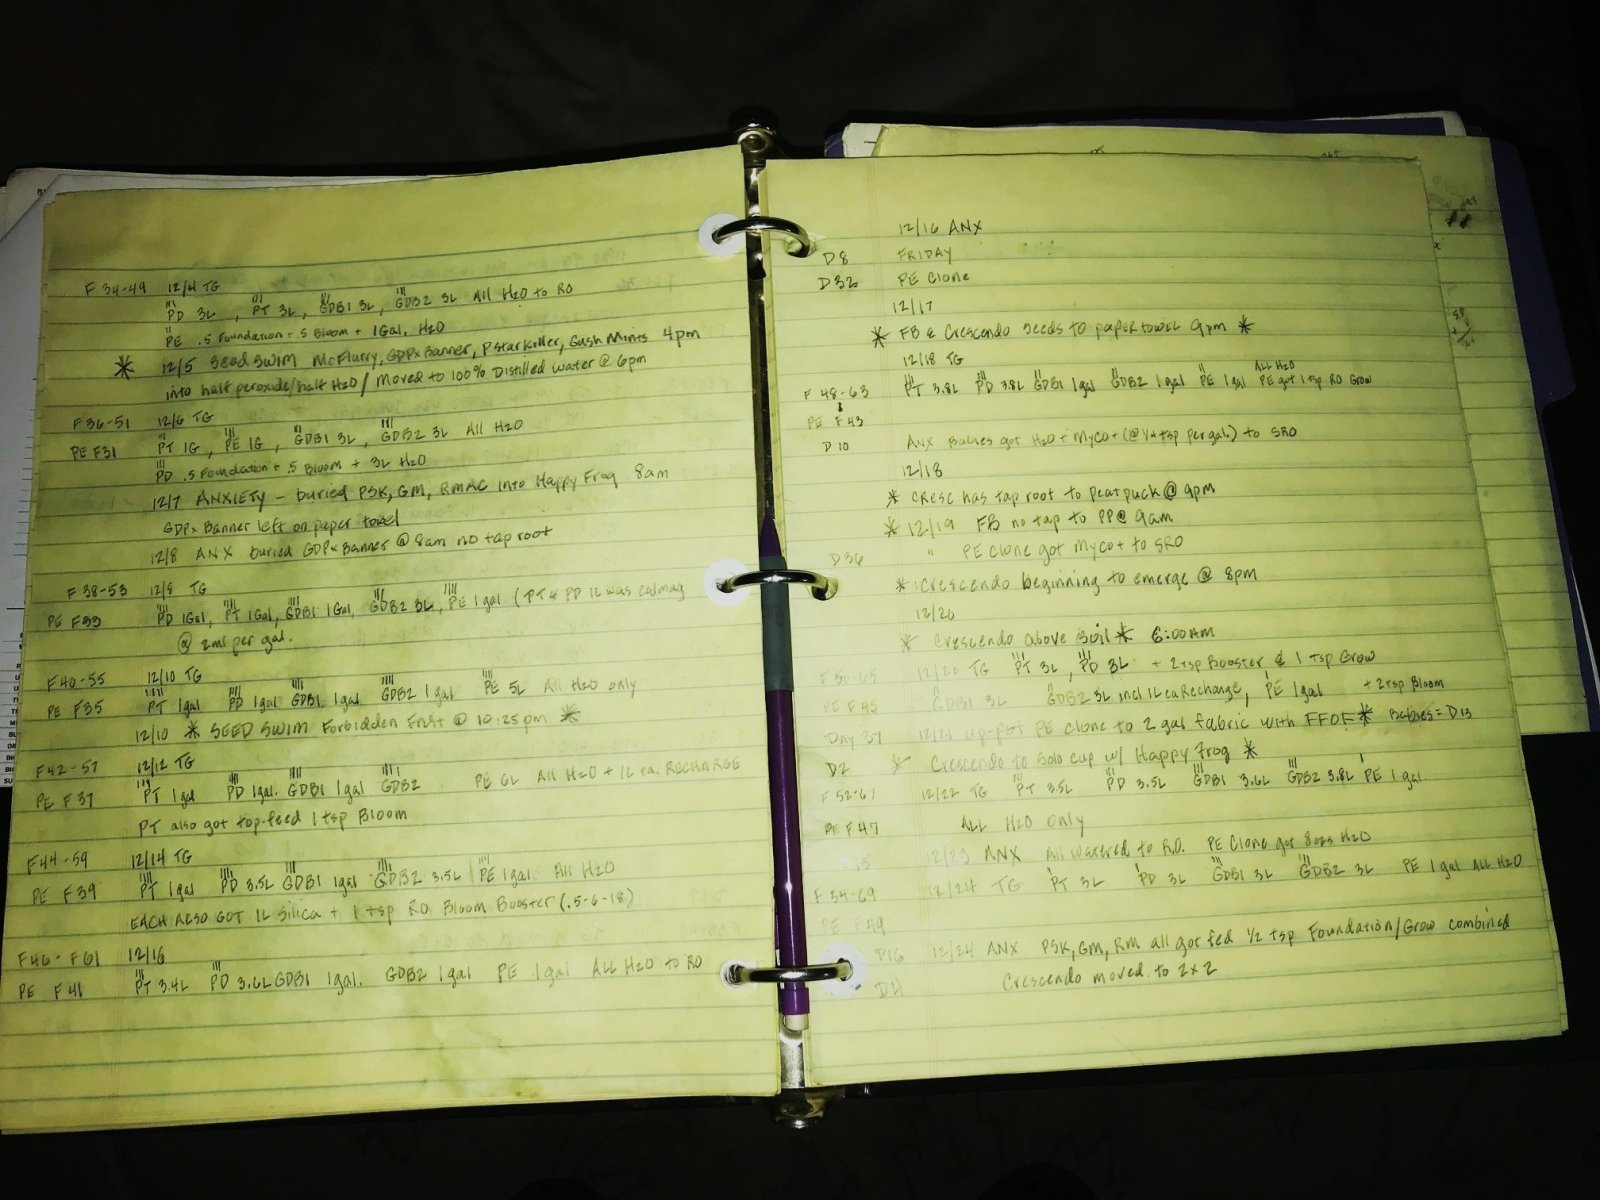 F 34-49 12/4 TG
PD 3L, PT 3L, GDB1 3L, GDB2 3L All H2O to RO
PE .5 Foundation + .5 Bloom + 1Gal. H2O
* 12/5 Seed Swim McFlurry, GDPxBanner, PStarKiller, Gush Mints 4pm
into half peroxide/half H2O / moved to 100% Distilled water @ 6pm
F36-51 12/6 TG
PE F31 PT 1G, PE 1G, GDB1 3L, GDB2 3L All H2O
PD .5 Foundation + .5 Bloom + 3L H2O
12/7 ANXIETY - buried PSK, GM, RMAC into Happy Frog 8am
GDPx Banner left on paper towel
12/8 ANX buried GDPxBanner @ 8am no tap root
F38-53 12/8 TG
PE F33 PD 1Gal, PT 1Gal, GDB1 1Gal, GDB2 3L, PE 1gal (PT & PD 1L was calmag
@ 2ml per gal.
F40-55 12/10 TG
PE F35 PT 1gal PD 1gal GDB1 1gal GDB2 1gal PE 5L All H2O only
12/10 * SEED SWIM Forbidden Fruit @ 10:25pm *
F42-57 12/12 TG
PE F37 PT 1gal PD 1gal. GDB1 1gal GDB2 PE 6L All H2O + 1L ea. RECHARGE
PT also got top-feed 1 tsp Bloom
F44-59 12/14 TG
PE F39 PT 1gal PD 3.5L GDB1 1gal GDB2 3.5L PE 1gal All H2O
EACH ALSO GOT 1L Silica + 1 tsp RO Bloom Booster (.5-6-18)
F46-F61 12/16
PE F41 PT 3.4L PD 3.6L GDB1 1gal. GDB2 1gal PE 1gal ALL H2O to RO
12/16 ANX
D8 FRIDAY
D32 PE Clone
12/17
* FB & Crescendo seeds to paper towel 9pm *
12/18 TG ALL H2O
F 48-63 PT 3.8L PD 3.8L GDB1 1gal GDB2 1gal PE 1gal PE got 1 tsp RO Grow
PE F43
D10 ANX Babies got H2O + Myco+ (@ 1/4 tsp per gal.) to SRO
12/18
* Cresc has tap root to peat puck @ 9pm
* 12/19 FB no tap to PP @ 9am
D36 " PE Clone got Myco+ to SRO
* Crescendo beginning to emerge @ 8pm
12/20
* Crescendo above soil * 6:00AM
F50-65 12/20 TG PT 3L, PD 3L + 2tsp Booster & 1 tsp Grow
PE F45 GDB1 3L GDB2 3L incl 1L ea Recharge, PE 1gal + 2tsp Bloom
Day 37 12/21 up-pot PE clone to 2 gal fabric with FFOF * Babies = D13
D2 * Crescendo to Solo cup w/ Happy Frog *
F 52-67 12/22 TG PT 3.5L PD 3.5L GDB1 3.6L GDB2 3.8L PE 1gal.
PE F47 ALL H2O only
15 12/23 ANX All watered to R.O. PE Clone got 8ozs H2O
F 54-69 12/24 TG PT 3L PD 3L GDB1 3L GDB2 3L PE 1gal ALL H2O
PE F49
D16 12/24 ANX PSK, GM, RM all got fed 1/2 tsp Foundation/Grow combined
D4 Crescendo moved to 2x2